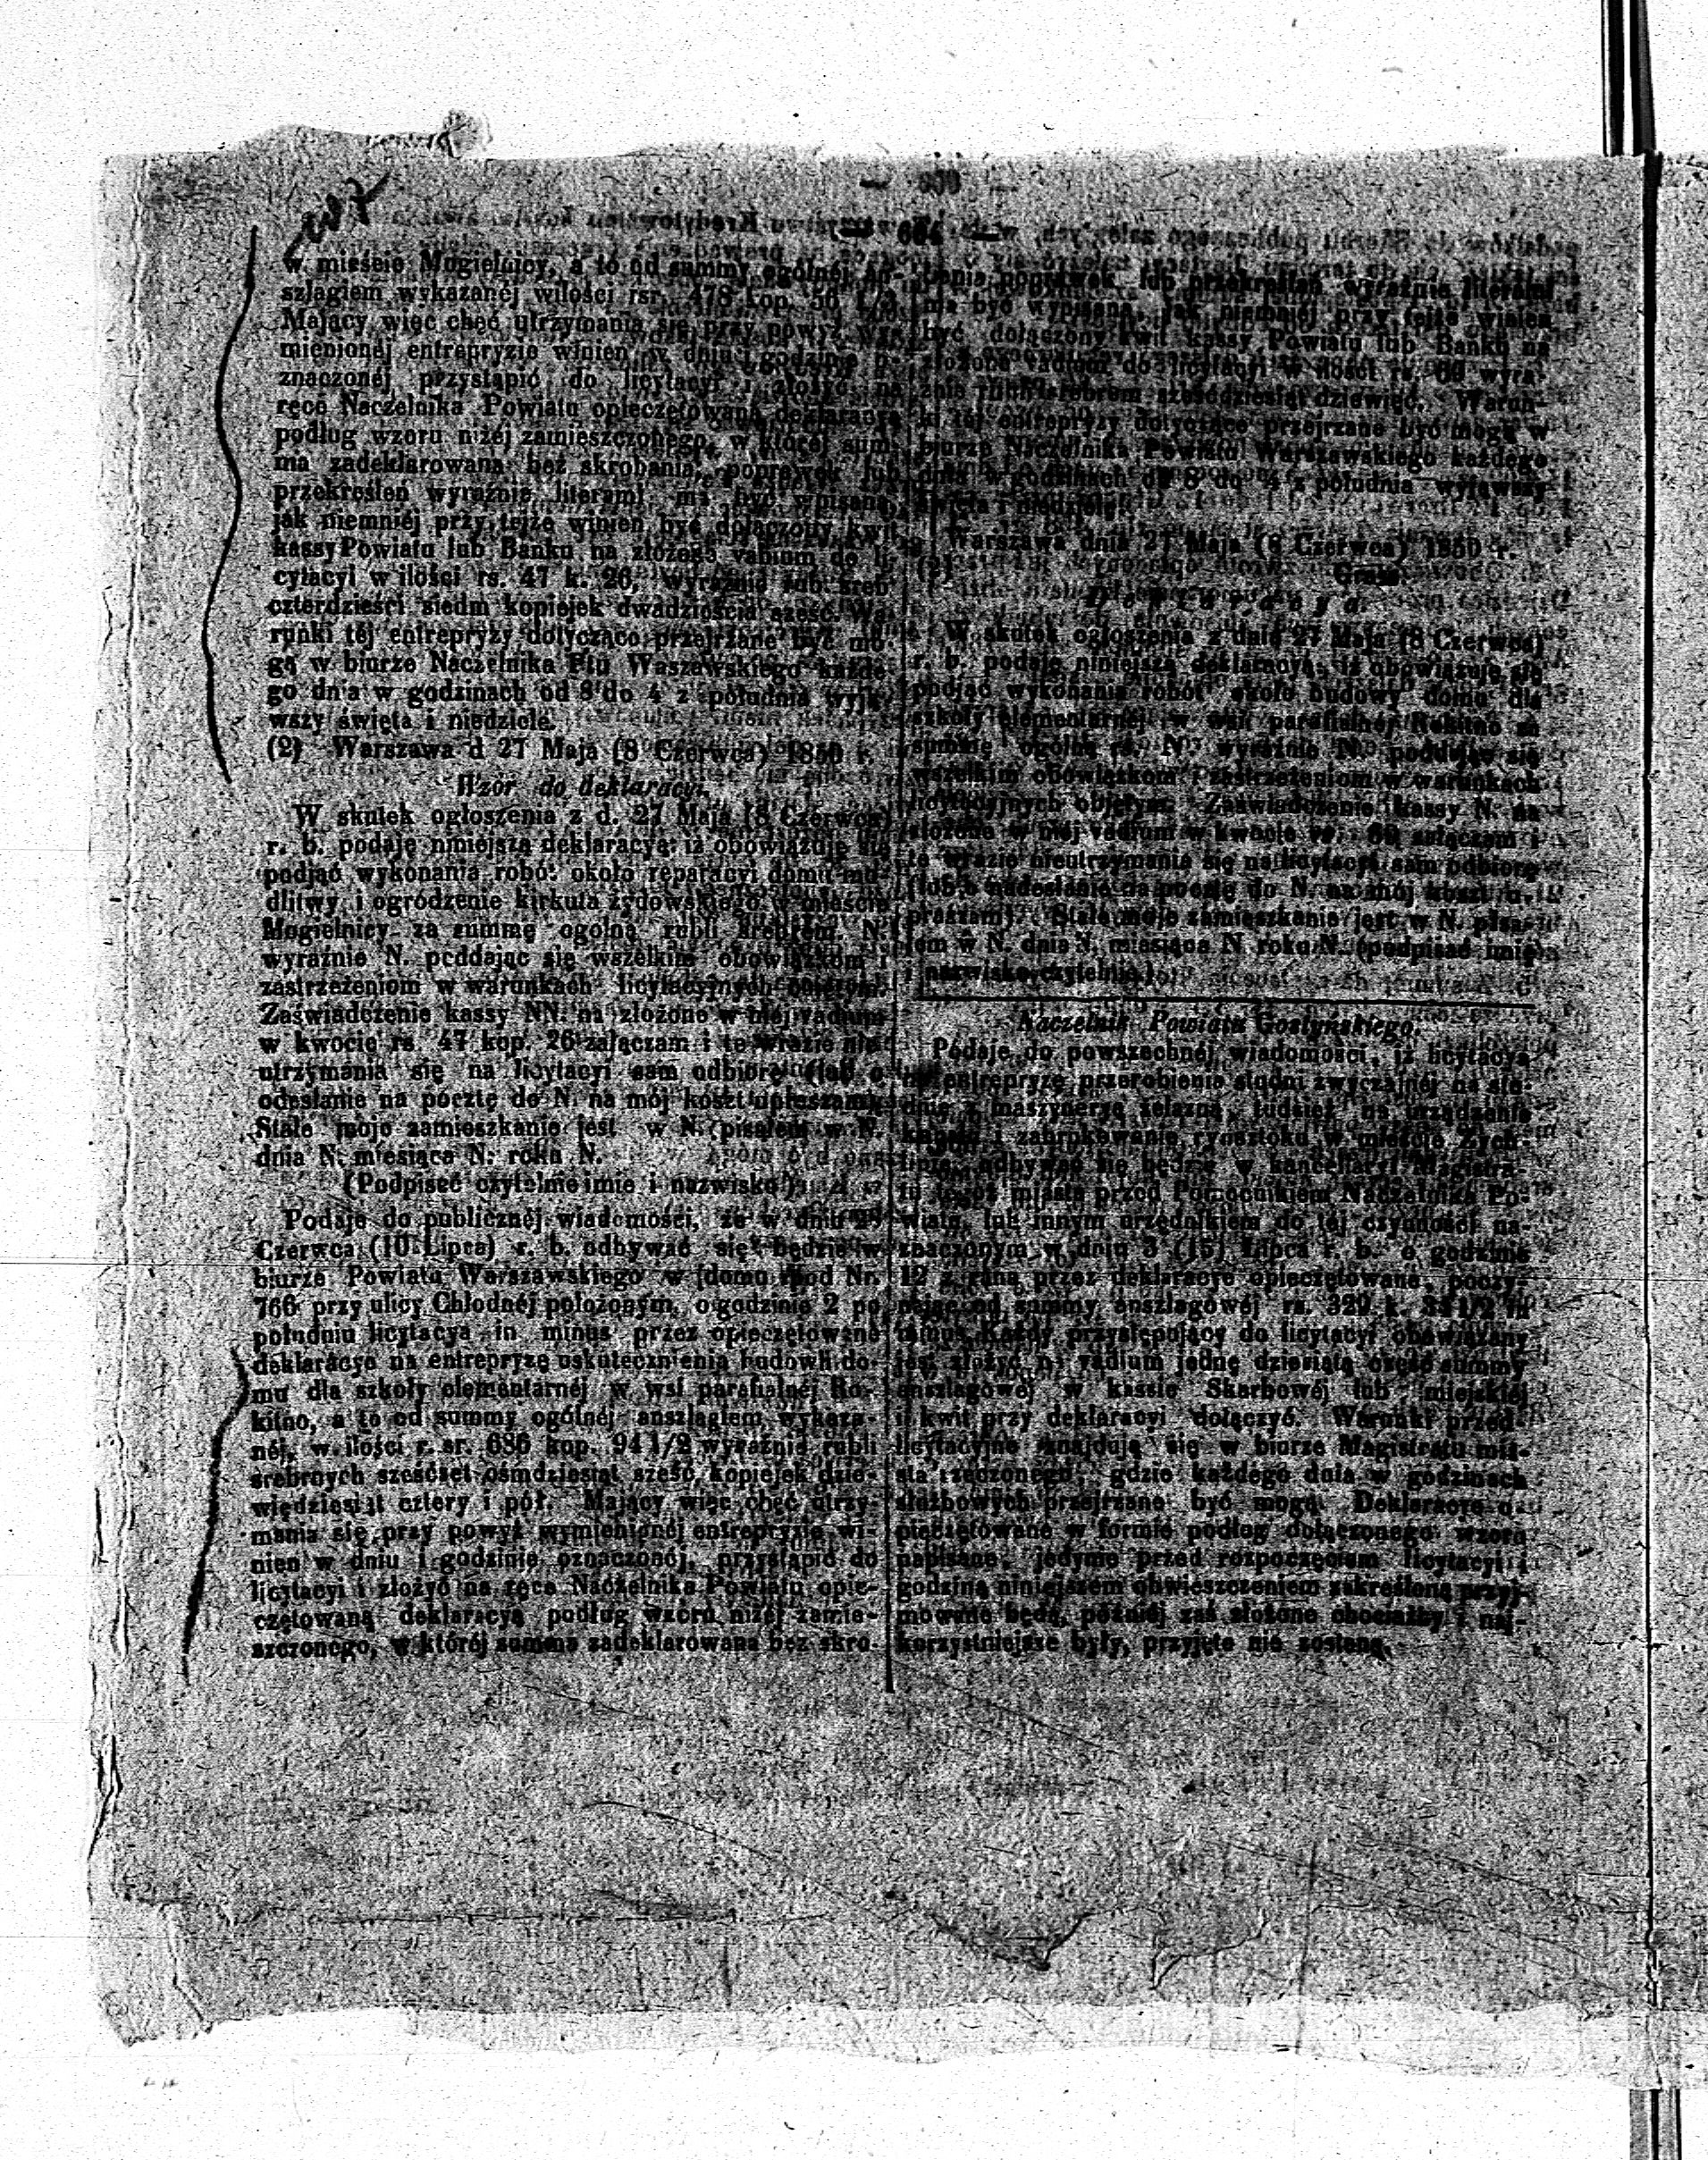 w mieście Mogielnicy, a to od summy ogólnéj an-
szlagiem wykazanéj wilości rsr. 478 kop. 56 1/2
Mający więc chęć utrzymania się przy powyż wy-
mienionéj entrepryzie winien w dniu i godzinie o-
znaczonéj przystąpić do licytacyi i złożyć na
ręce Naczelnika Powiatu opieczętowaną deklaracyę
podług wzoru niżéj zamieszczonego, w któréj sum-
ma zadeklarowana bez skrobania, poprawek lub
przekreśleń wyraźnie literami ma być wpisaną
jak niemniéj przy tejże winien być dołączony kwit
kassy Powiatu lub Banku na złożone vadium do li-
cytacyi w ilości rs. 47 k. 26, wyraźnie rub. sreb
czterdzieści siedm kopiejek dwadzieścia sześć. Wa-
runki téj entrepryzy dotyczące przejrzane być mo-
gą w biurze Naczelnika Ptu Waszawskiego każde-
go dnia w godzinach od 8 do 4 z południa wyją-
wszy święta i niedziele.
(2) Warszawa d 27 Maja (8 Czerwca) 1850 r.
Wzór do deklaracyi.
W skutek ogłoszenia z d. 27 Maja (8 Czerwca)
r. b. podaję niniejszą deklaracyą: iż obowiązuję się
podjąć wykonania robót około reparacyi domu mo-
dlitwy i ogrodzenie kirkuta żydowskiego w mieście
Mogielnicy za summę ogólną rubli srebrem N.
wyraźnie N. poddając się wszelkim obowiązkom i
zastrzeżeniom w warunkach licytacyjnych objętym.
Zaświadczenie kassy NN. na złożone w niéj vadium
w kwocie rs. 47 kop. 26 załączam i te w razie nie-
utrzymania się na licytacyi sam odbiorę (lub o
odesłanie na pocztę do N. na mój koszt upraszam)
Stałe moje zamieszkanie jest w N. pisałem w N.
dnia N. miesiąca N. roku N.
(Podpisać czytelnie imie i nazwisko)
Podaje do publicznéj wiadomości, że w dniu 28
Czerwca (10 Lipca) r. b. odbywać się będzie w
biurze Powiatu Warszawskiego w domu pod Nr.
766 przy ulicy Chłodnéj położonym, o godzinie 2 po
południu licytacya in minus przez opieczętowane
deklaracye na entrepryzę uskutecznienia budowli do-
mu dla szkoły elementarnéj w wsi parafialnéj Ro-
kitno, a to od summy ogólnéj anszlagiem wykaza-
néj, w ilości r. sr. 686 kop. 94 1/2 wyraźnie rubli
srebrnych sześćset ośmdziesiąt sześć kopiejek dzie-
więdziesiąt cztery i pół. Mający więc chęć utrzy-
mania się przy powyż wymienionéj entrepryzie wi-
nien w dniu i godzinie oznaczonéj, przystąpić do
licytacyi i złożyć na ręce Naczelnika Powiatu opie-
czętowaną deklaracyą podług wzoru niżéj zamie-
szczonego, w któréj summa zadeklarowana bez skro-
bania poprawek lub przekreśleń wyraźnie literami
ma być wypisaną, jak niemniéj przy tejże winien
być dołączony kwit kassy Powiatu lub Banku na
złożone vadium do licytacyi w ilości rs. 69 wyra-
źnie rubli srebrem sześćdziesiąt dziewięć. Warun-
ki téj entrepryzy dotyczące przejrzane być mogą w
biurze Naczelnika Powiatu Warszawskiego każdego
dnia w godzinach od 8 do 4 z południa wyjąwszy
święta i niedziele.
Warszawa dnia 27 Maja (8 Czerwca) 1850 r.
(2)
W skutek ogłoszenia z dnia 27 Maja (8 Czerwca)
r. b. podaję niniejszą deklaracyą, iż obowiązuję się
podjąć wykonania robót około budowy domu dla
szkoły elementarnéj w wsi parafialnéj Rokitno za
summę ogólną rs. N. wyraźnie N. poddając się
wszelkim obowiązkom i zastrzeżeniom w warunkach
licytacyjnych objętym. Zaświadczenie kassy N. na
złożone w niéj vadium w kwocie rs. 69 załączam i
te w razie nieutrzymania się na licytacyi sam odbiorę
(lub o nadesłanie na pocztę do N. na mój koszt u-
praszam). Stałe moje zamieszkanie jest w N. pisa-
łem w N. dnia N. miesiąca N. roku N. (podpisać imię
i nazwisko czytelnie).
Naczelnik Powiatu Gostyńskiego.
Podaje do powszechnéj wiadomości, iż licytacya
na entrepryzę przerobienie studni zwyczajnéj na stu-
dnię z maszyneryą żelazną, tudzież na urządzenie
i zabrukowanie rynsztoku w mieście Żych-
linie, odbywać się będzie w kancellaryi Magistra-
tu tegoż miasta przed Pomocnikiem Naczelnika Po-
wiatu, lub innym urzędnikiem do téj czynności na-
znaczonym w dniu 3 (15) Lipca r. b. o godzinie
12 z rana przez deklaracye opieczętowane, poczy-
nając od summy anszlagowéj rs. 329 k. 33 1/2 in
minus. Każdy przystępujący do licytacyi obowiązany
jest złożyć na vadium jednę dziesiątą część summy
anszlagowéj w kassie Skarbowéj lub miejskiéj
i kwit przy deklaracyi dołączyć. Warunki przed-
licytacyjne znajdują się w biurze Magistratu mia-
sta rzeczonego, gdzie każdego dnia w godzinach
służbowych przejrzane być mogą. Deklaracye o-
pieczętowane w formie podług dołączonego wzoru
napisane, jedynie przed rozpoczęciem licytacyi i
godziną niniejszem obwieszczeniem zakreśloną przyj-
mowane będą, później zaś złożone chociażby i naj-
korzystniejsze były, przyjęte nie zostaną.